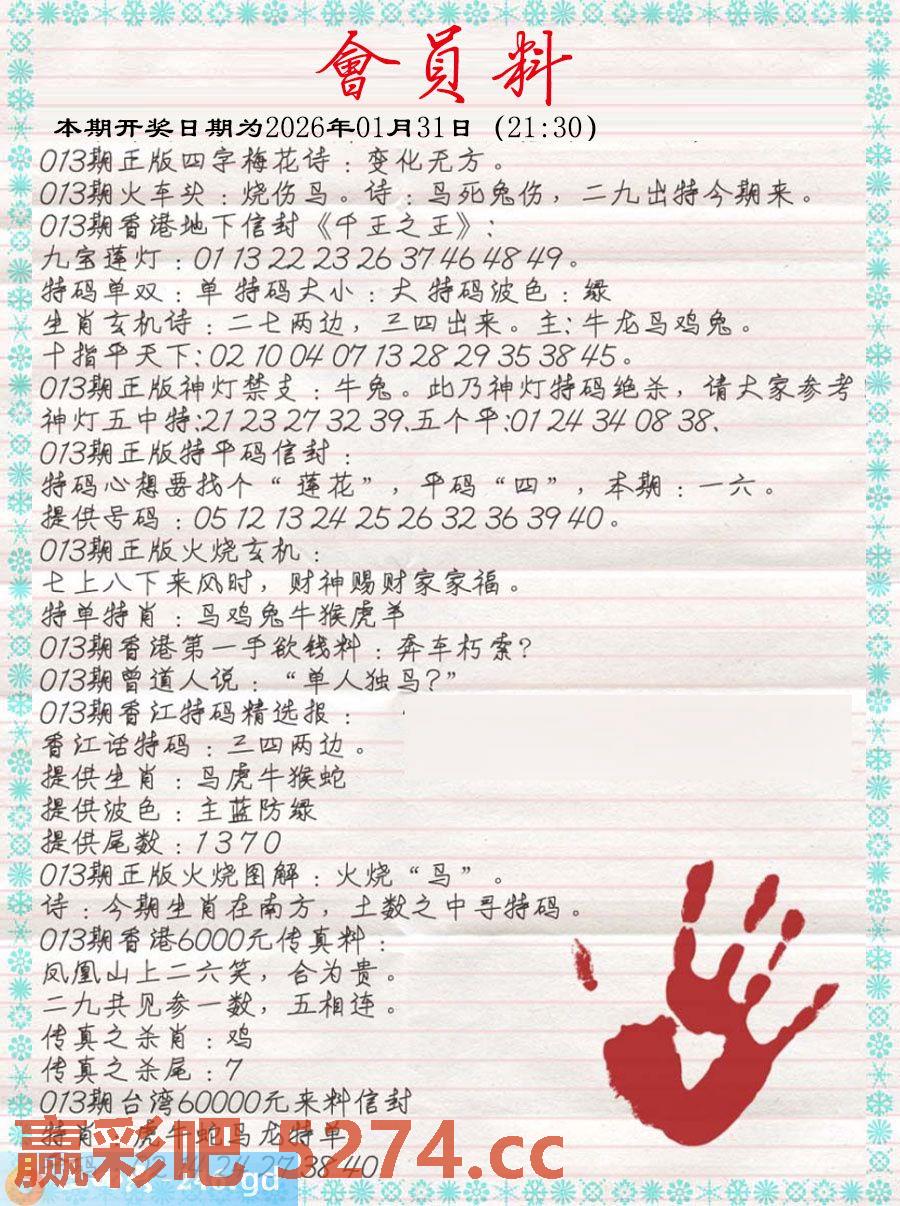 會員料
本期开奖日期为2026年01月31日（21:30）
013期正版四字梅花诗：变化无方。
013期火车头：烧伤鸟。诗：鸟死兔伤，二九出特今期来。
013期香港地下信封《千王之王》:
九宝莲灯：01 13 22 23 26 37 46 48 49。
特码单双：单 特码大小：大 特码波色：绿
生肖玄机诗：二七两边，三四出来。主:牛龙鸟鸡兔。
十指平天下:02 10 04 07 13 28 29 35 38 45。
013期正版神灯禁支：牛兔。此乃神灯特码绝杀，请大家参考
神灯五中特:21 23 27 32 39、五个平:01 24 34 08 38、
013期正版特平码信封：
特码心想要找个“莲花”，平码“四”，本期：一六。
提供号码：05 12 13 24 25 26 32 36 39 40。
013期正版火烧玄机：
七上八下来风时，财神赐财家家福。
特单特肖：鸟鸡兔牛猴虎羊
013期香港第一手欲钱料：奔车朽索?
013期曾道人说：“单人独鸟?”
013期香江特码精选报：
香江话特码：三四两边。
提供生肖：鸟虎牛猴蛇
提供波色：主蓝防绿
提供尾数：1 3 7 0
013期正版火烧图解：火烧“鸟”。
诗：今期生肖在南方，土数之中寻特码。
013期香港6000元传真料：
凤凰山上二六笑，合为贵。
二九共见参一数，五相连。
传真之杀肖：鸡
传真之杀尾：7
013期台湾60000元来料信封
特肖：虎牛蛇鸟龙特单
24 27 38 40
赢彩吧.5274.cc